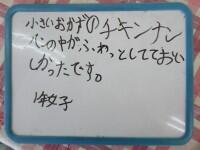 小さいおかず① チキンナン
パンの中が、ふわっとしてておい
しかったです。
1年女子